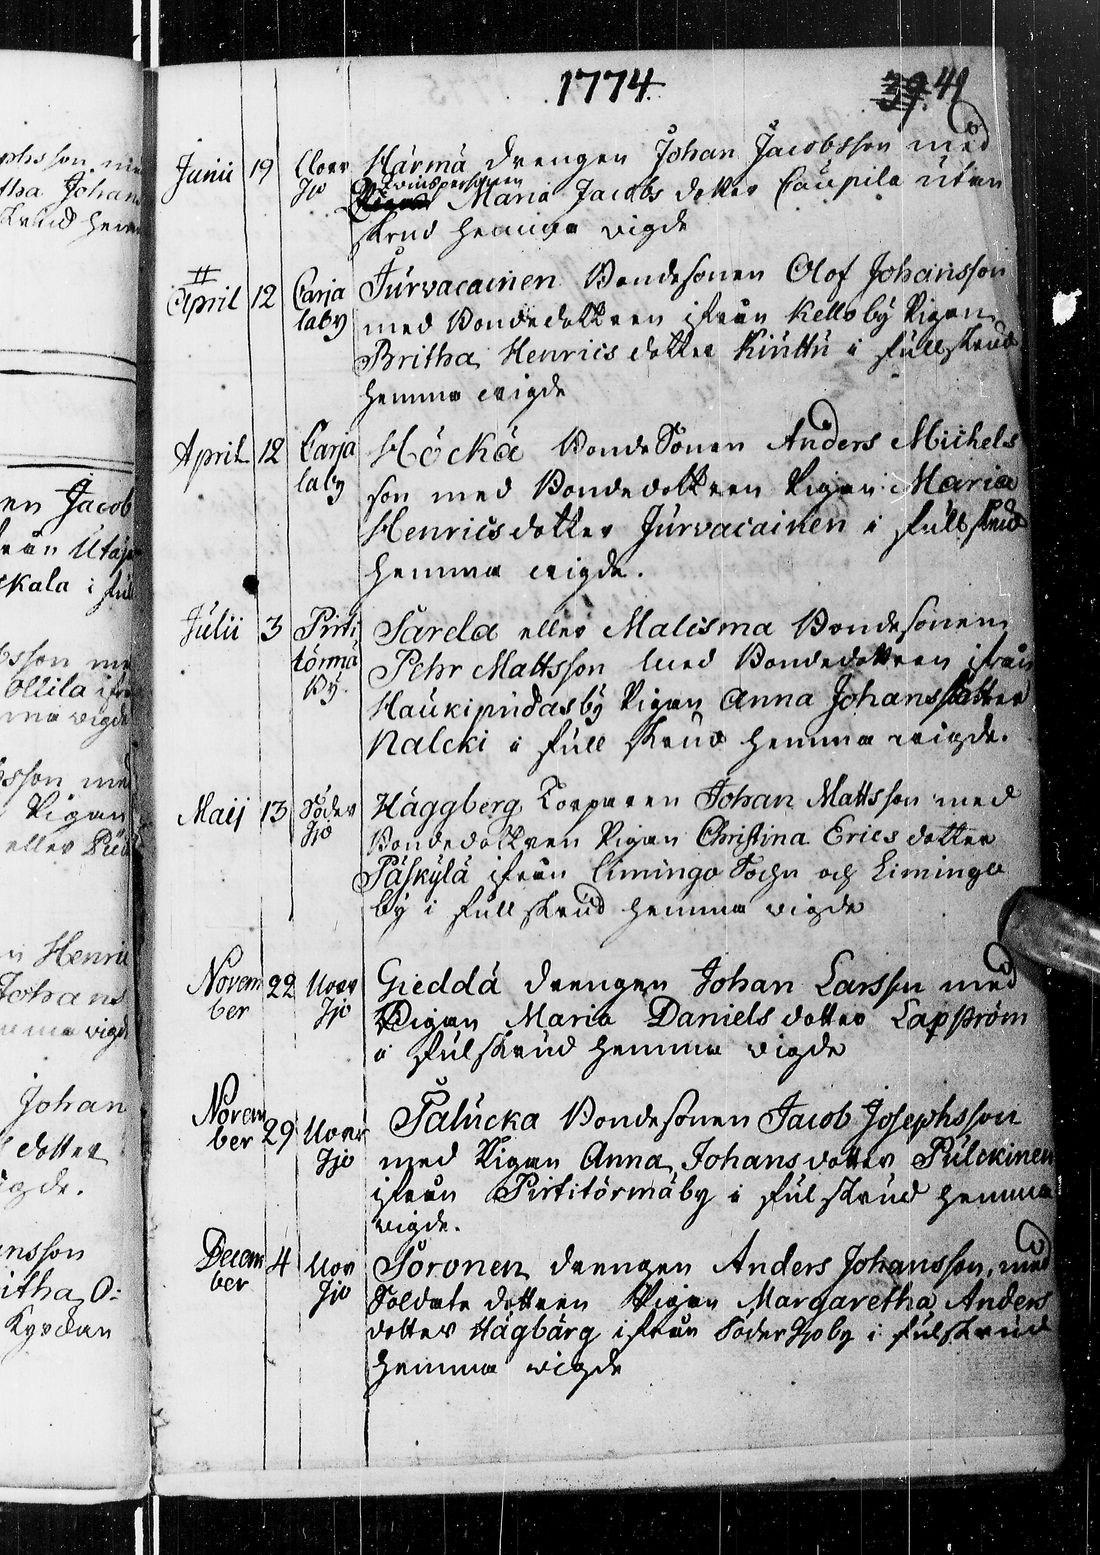 1774.
39. 41
Junii 19 Över Ijo Härmä Drengen Johan Jacobsson med
Qvinspersonen Maria Jacobs dotter Caupila utan
skrud hemma vigde
April 12 Carjalaby Jurvacainen Bondesonen Olof Johansson
med Bondedottren ifrån Kelloby Pigan
Britha Henrics dotter Kinttu i full skrud
hemma vigde
April 12 Carjalaby Höckä Bonde Sonen Anders Michels
son med Bondedottren Pigan Maria
Henrics dotter Jurvacainen i full skrud
hemma vigde.
Julii 3 Pirttitörmä By. Särelä eller Malisma Bondesonen
Pehr Mattsson med Bondedottren ifrån
Haukipudasby Pigan Anna Johans dotter
Nalcki i full skrud hemma vigde.
Maij 13 Söder Ijo Häggberg Torparen Johan Mattsson med
Bondedottren Pigan Christina Erics dotter
Päskylä ifrån Limingo Sochn och Limingo
by i full skrud hemma vigde
November 22 Över Ijo Gieddä Drengen Johan Larsson med
Pigan Maria Daniels dotter Lapström
i fulskrud hemma vigde
November 29 Över Ijo Palucka Bondesonen Jacob Josephsson
med Pigan Anna Johans dotter Pulckinen
ifrån Pirtitörmäby i ful skrud hemma
vigde.
December 4 Över Ijo Soronen Drengen Anders Johansson, med
Soldate dottren Pigan Margaretha Anders
dotter Hägbärg ifrån Söder Ijoby i fulskrud
hemma vigde